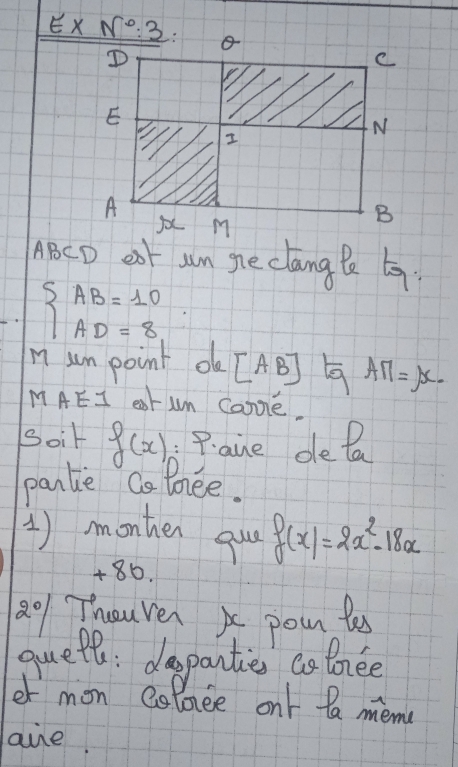 EX N°:3:
D O C
E I N
A x M B
ABCD est un rectangle tq:
{ AB = 10
AD = 8
M un point de [AB] tq AM = x.
MAEI est un carré.
Soit f(x): l'aire de la
partie colorée.
1) montrer que f(x) = 2x² - 18x
+ 80.
2°/ Trouver x pour les
quelle: des parties colorée
et non colorée ont la même
aire.